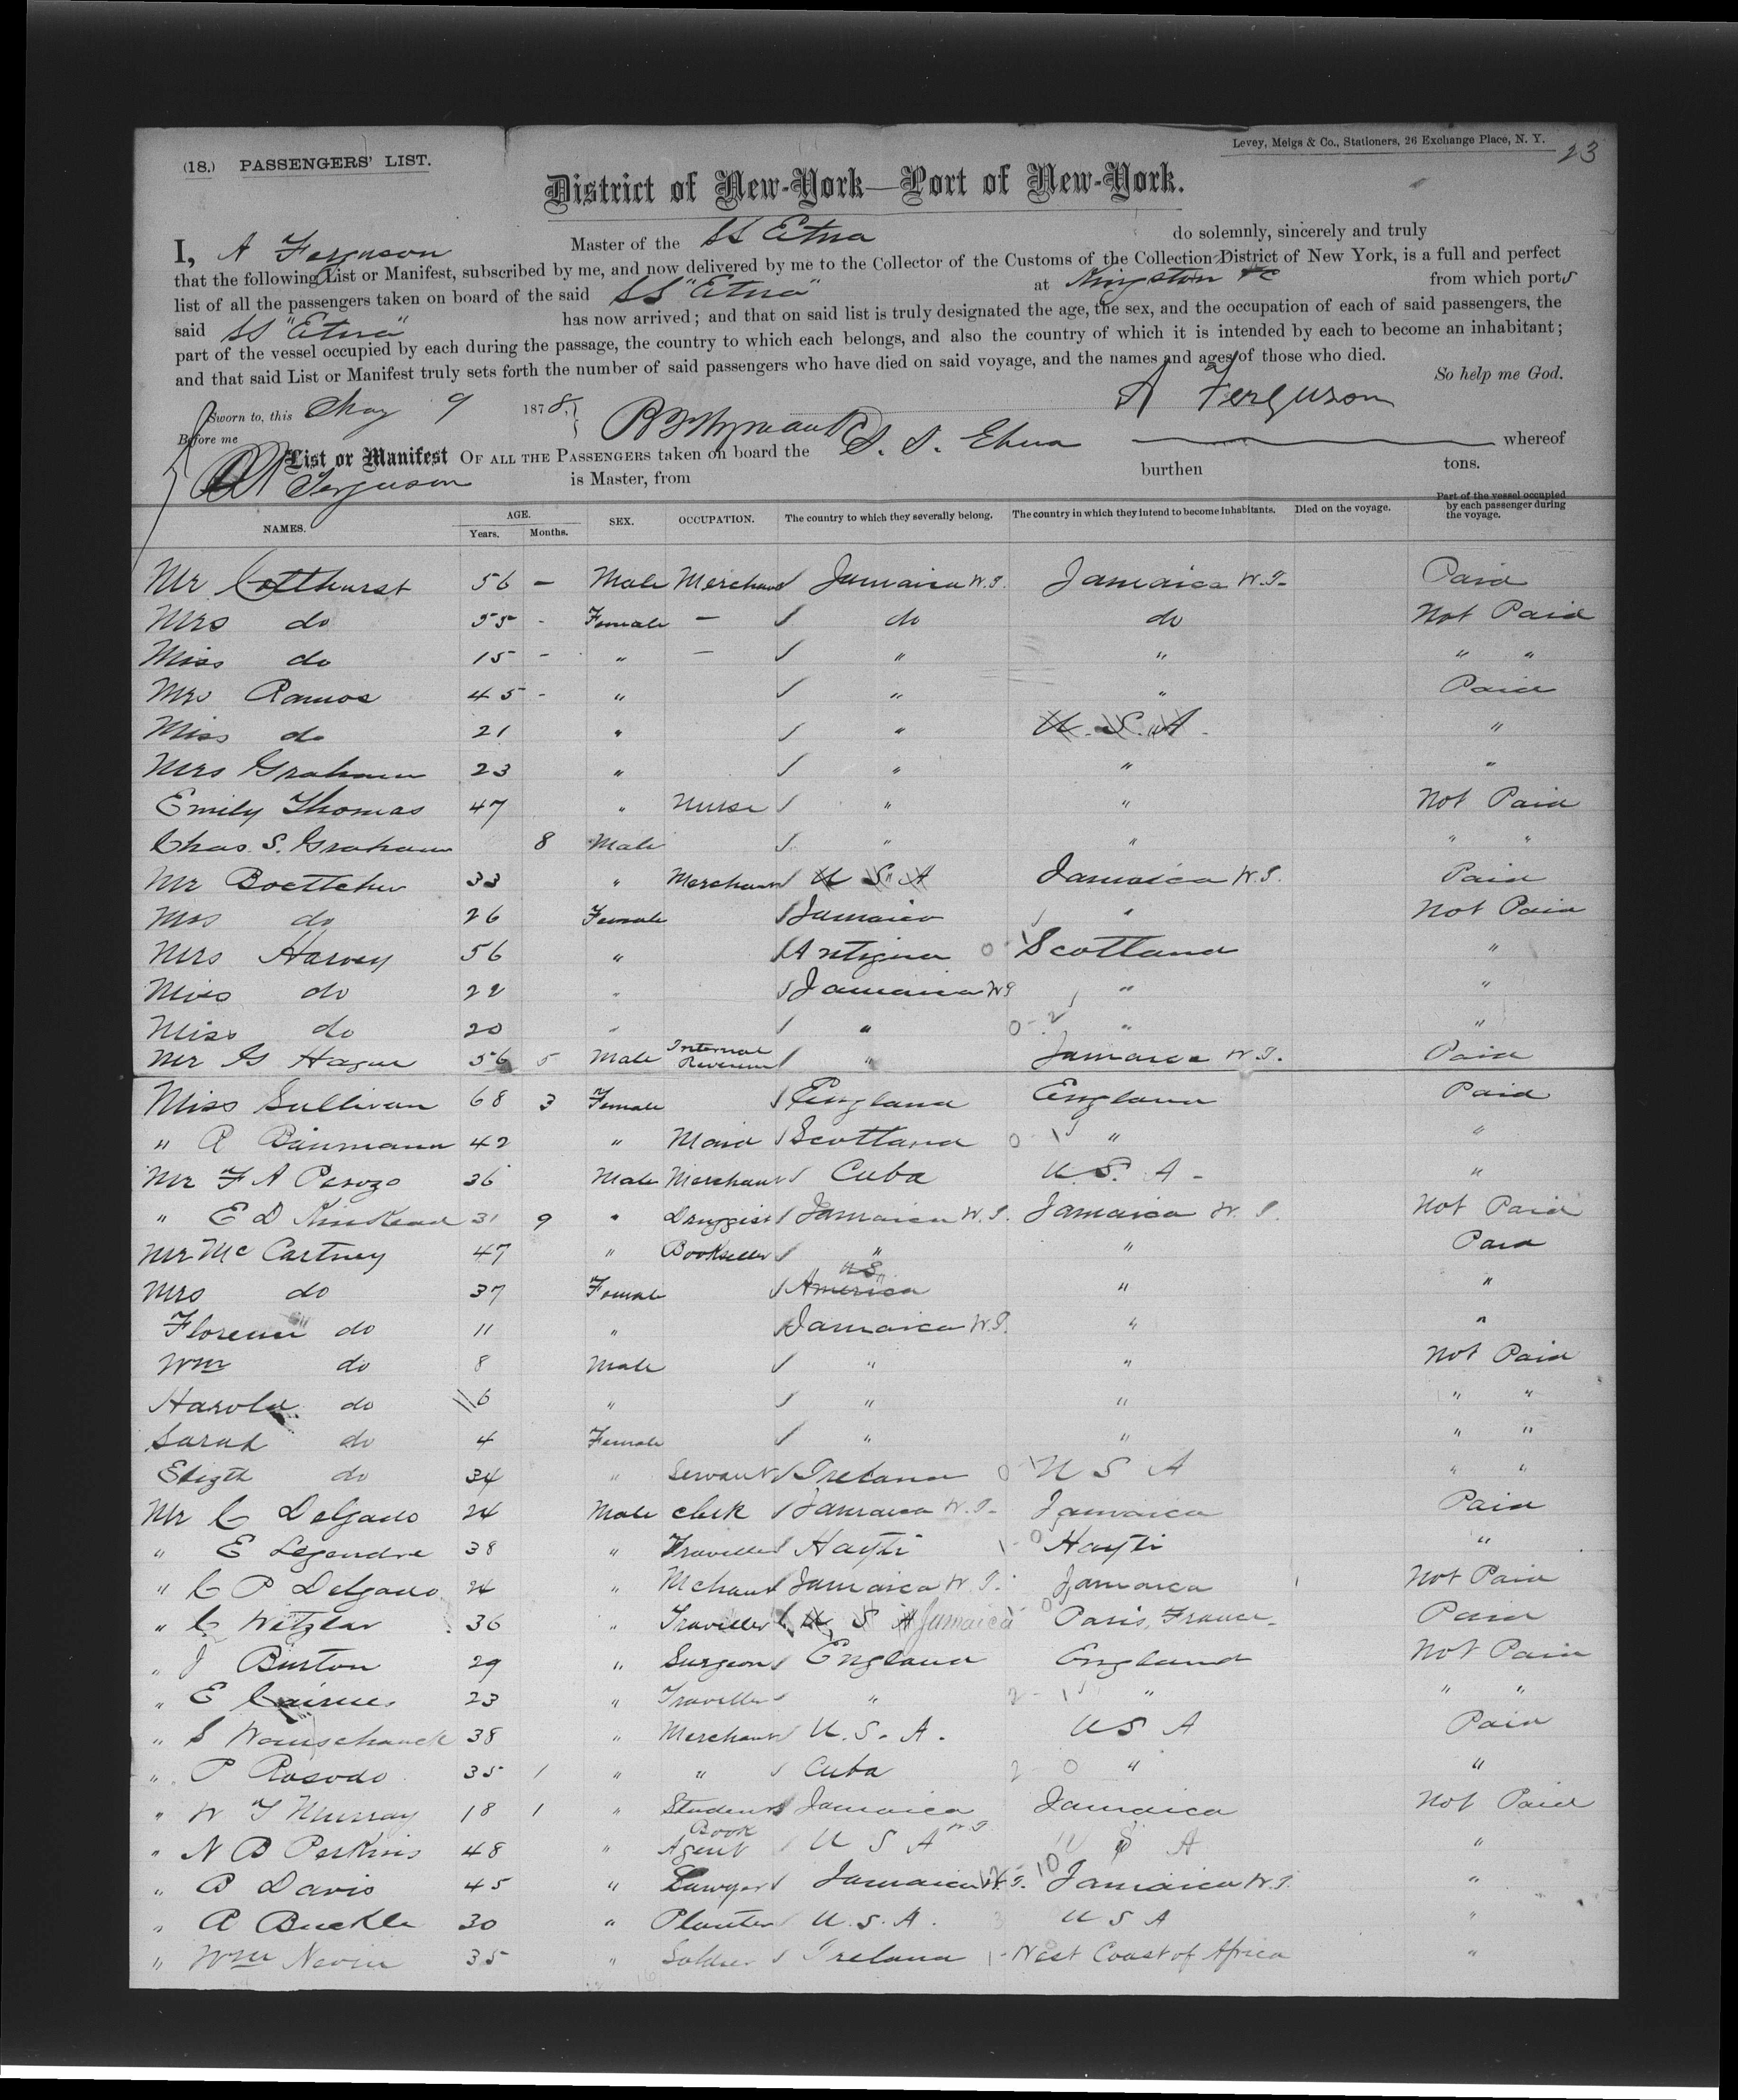 Levey, Meigs & Co., Stationers, 26 Exchange Place, N. Y. 23
(18.) PASSENGERS' LIST.
District of New-York—Port of New-York.
I, A Ferguson Master of the SS Etna do solemnly, sincerely and truly
that the following List or Manifest, subscribed by me, and now delivered by me to the Collector of the Customs of the Collection District of New York, is a full and perfect
list of all the passengers taken on board of the said SS "Etna" at Kingston &c from which ports
said SS "Etna" has now arrived; and that on said list is truly designated the age, the sex, and the occupation of each of said passengers, the
part of the vessel occupied by each during the passage, the country to which each belongs, and also the country of which it is intended by each to become an inhabitant;
and that said List or Manifest truly sets forth the number of said passengers who have died on said voyage, and the names and ages of those who died.
So help me God.
Sworn to, this May 9 1878. A Ferguson
Before me
List or Manifest OF ALL THE PASSENGERS taken on board the S. S. Etna whereof
Ferguson is Master, from burthen tons.
NAMES. AGE. Years. Months. SEX. OCCUPATION. The country to which they severally belong. The country in which they intend to become inhabitants. Died on the voyage. Part of the vessel occupied by each passenger during the voyage.
Mr 56 — Male Merchant Jamaica W.I. Jamaica W.I. Paid
Mrs do 55 - Female — do do Not Paid
Miss do 15 - " — " " " "
Mrs Ramos 45 - " " " Paid
Miss do 21 " " U.S.A. "
Mrs Graham 23 " " " "
Emily Thomas 47 " Nurse " " Not Paid
Chas. S. Graham 8 Male " " " "
Mr Boettcher 33 " Merchant U S A Jamaica W.I. Paid
Mrs do 26 Female Jamaica " Not Paid
Mrs Harvey 56 " Antigua 0 - 1 Scotland "
Miss do 22 " Jamaica W I " "
Miss do 20 " " 0 - 2 " "
Mr G 56 5 Male Internal Revenue " Jamaica W.I. Paid
Miss Sullivan 68 3 Female England England Paid
" R 42 " Maid Scotland 0 - 1 " "
Mr F A Perozo 36 Male Merchant Cuba U.S. A - "
" E D Kinkead 31 9 " Druggist Jamaica W.I. Jamaica W.I. Not Paid
Mr McCartney 47 " Bookseller " " Paid
Mrs do 37 Female U.S. America " "
Florence do 11 " Jamaica W.I. " "
Wm do 8 Male " " Not Paid
Harold do 6 " " " " "
Sarah do 4 Female " " " "
Elizth do 34 " Servant Ireland 0 U S A " "
Mr C Delgado 24 Male clerk Jamaica W.I. Jamaica Paid
" E Legendre 38 " Traveller Hayti 1 - 0 Hayti "
" C P Delgado 24 " Mchant Jamaica W.I. Jamaica Not Paid
" C Wetzlar 36 " Traveller U S A Jamaica 0 Paris, France - Paid
" J Burton 29 " Surgeon England England Not Paid
" E 23 " Traveller " 2 - 1 " " "
" S 38 " Merchant U.S.A. U S A Paid
" P Rosodo 35 1 " " Cuba 2 0 " "
" W T Murray 18 1 " Student Jamaica W I Jamaica Not Paid
" N B Perkins 48 " Book Agent U S A U S A "
" B Davis 45 " Lawyer Jamaica W.I. 10 Jamaica W.I. "
" R Buckle 30 " Planter U.S.A. 3 U S A "
" Wm Nevin 35 " Soldier Ireland 1 - West Coast of Africa "